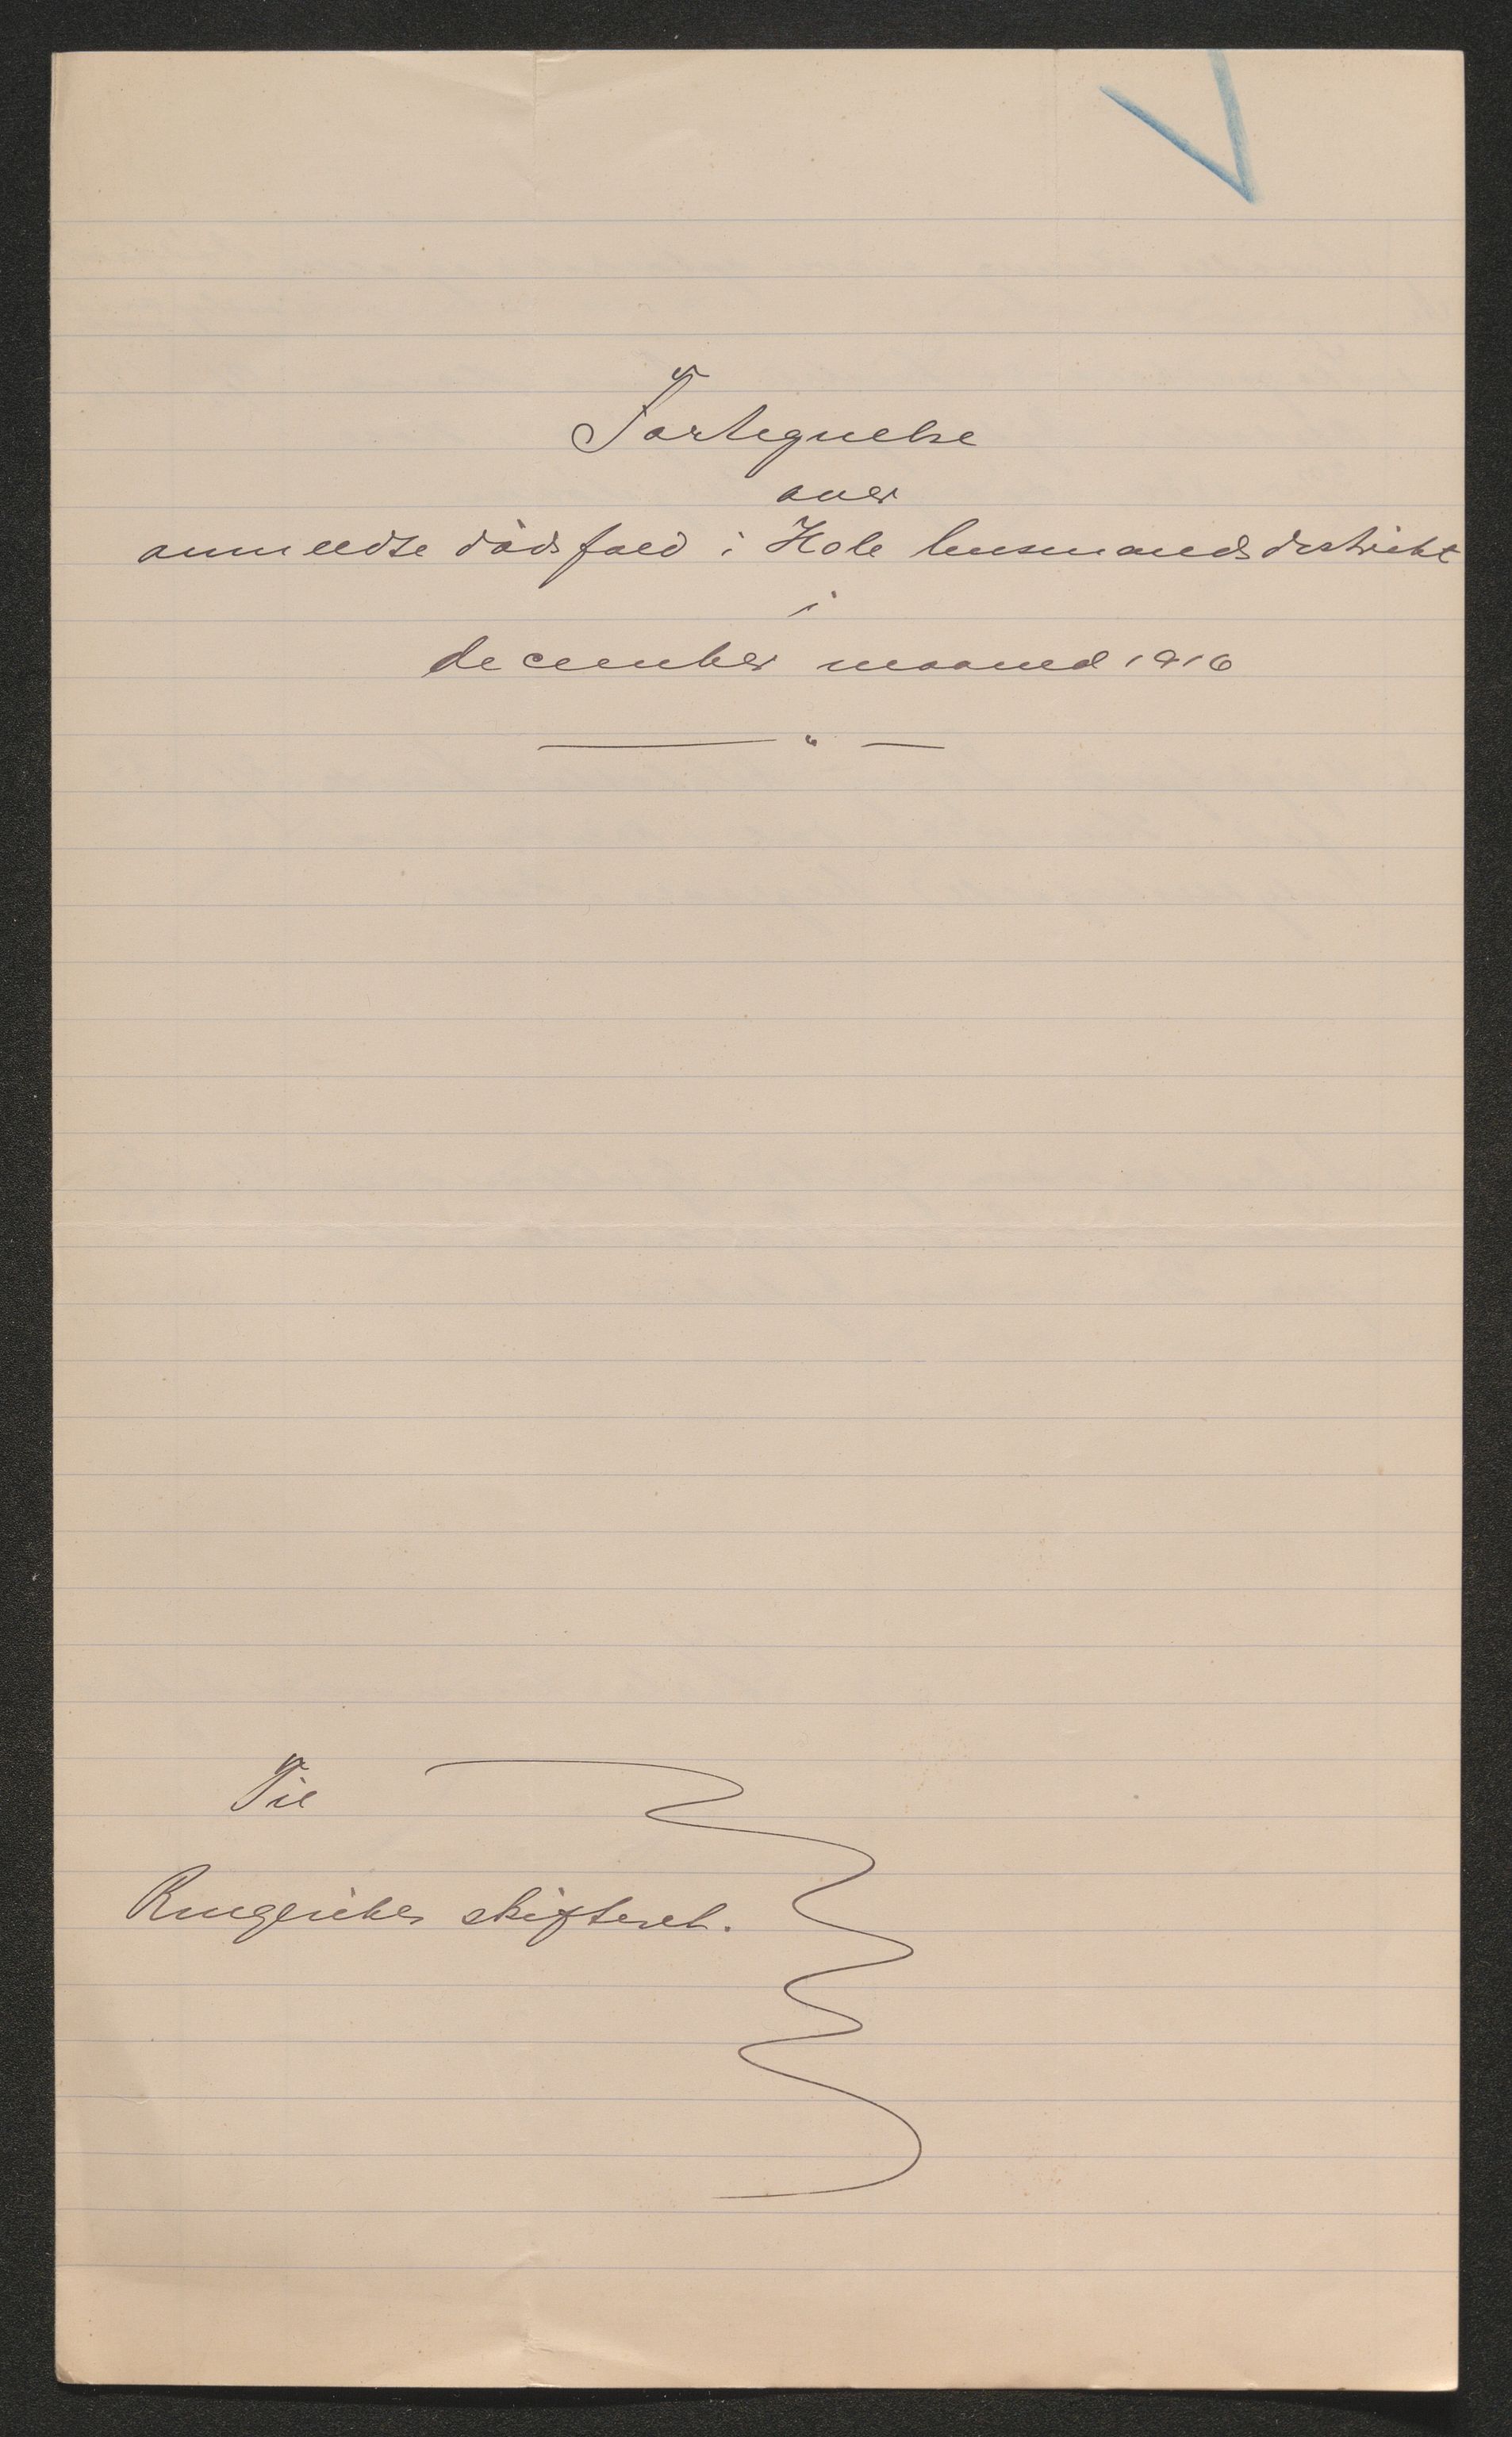 Fortegnelse
over
anmeldte dödsfald i Hole lensmandsdistrikt
i
december maaned 1916
Til
Ringerikes skifteret.